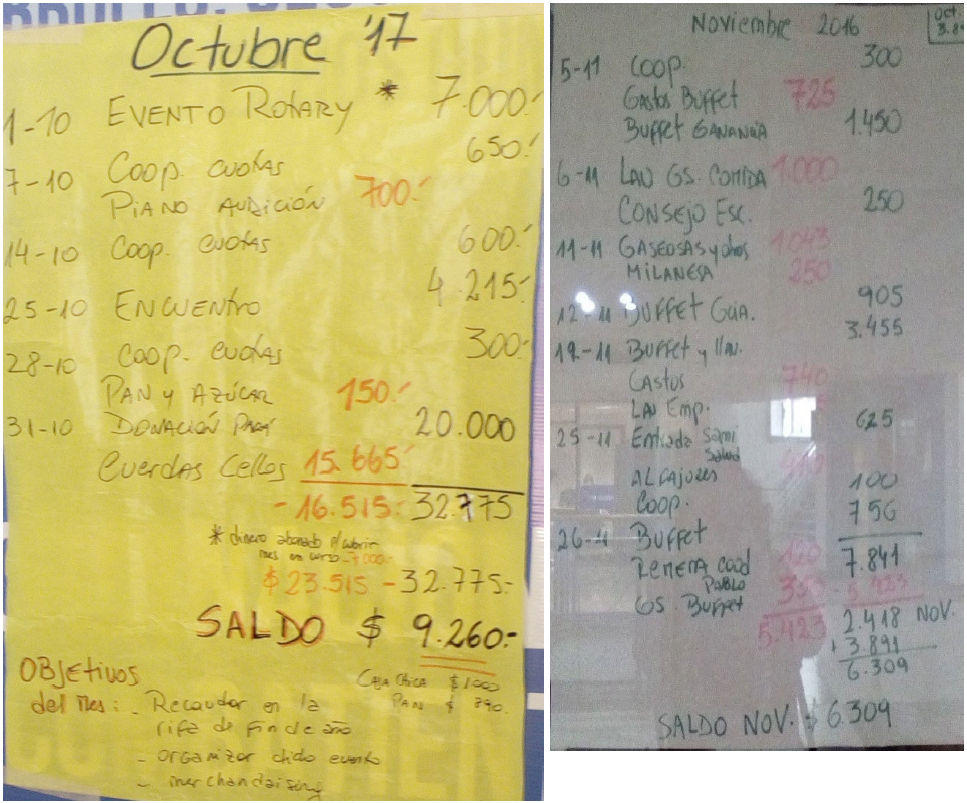 Octubre '17
1-10 EVENTO ROTARY * 7.000.-
7-10 Coop. cuotas 650.-
PIANO AUDICIÓN 700.-
14-10 Coop. cuotas 600.-
25-10 ENCUENTRO 4.215.-
28-10 Coop. cuotas 300.-
PAN y AZÚCAR 150.-
31-10 DONACIÓN PARA 20.000
Cuerdas Cellos 15.665.-
- 16.515.- 32.775
* dinero abonado p/cubrir
mes en curso - 7.000.-
$ 23.515 - 32.775.-
SALDO $ 9.260.-
CAJA CHICA $ 1000
PAN $ 390.
OBJETIVOS
del mes: - Recaudar en la
rifa de fin de año
- organizar dicho evento
- merchandaising
Noviembre 2016
Oct.
5-11 COOP. 300
Gastos Buffet 725
Buffet GANANCIA 1.450
6-11 LAU GS. COMIDA 1.000
CONSEJO ESC. 250
11-11 GASEOSAS y otros 1.043
MILANESA 250
12-11 BUFFET GUA. 905
19-11 BUFFET y 3.455
GASTOS 740
LAU Emp.
25-11 Entrada Sami 625
Salud
ALFAJORES 100
COOP. 756
26-11 Buffet
REMERA COOD 7.841
PABLO - 5.423
GS. Buffet
5.423 2.418 NOV.
+ 3.891
6.309
SALDO NOV. $ 6.309